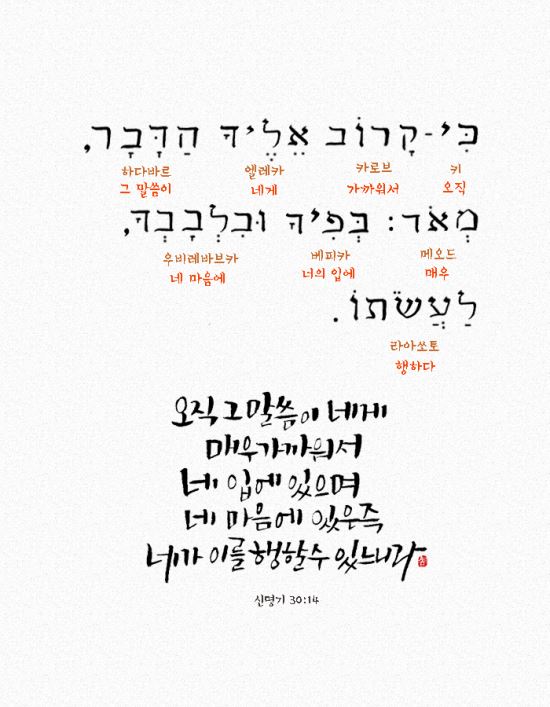 כִּי-קָרוֹב אֵלֶיךָ הַדָּבָר,
키 카로브 엘레카 하다바르
오직 가까워서 네게 그 말씀이
מְאֹד: בְּפִיךָ וּבִלְבָבְךָ,
메오드 베피카 우비레바브카
매우 너의 입에 네 마음에
לַעֲשֹׂתוֹ.
라아쏘토
행하다
오직 그 말씀이 네게
매우 가까워서
네 입에 있으며
네 마음에 있은즉
네가 이를 행할 수 있느니라
신명기 30:14